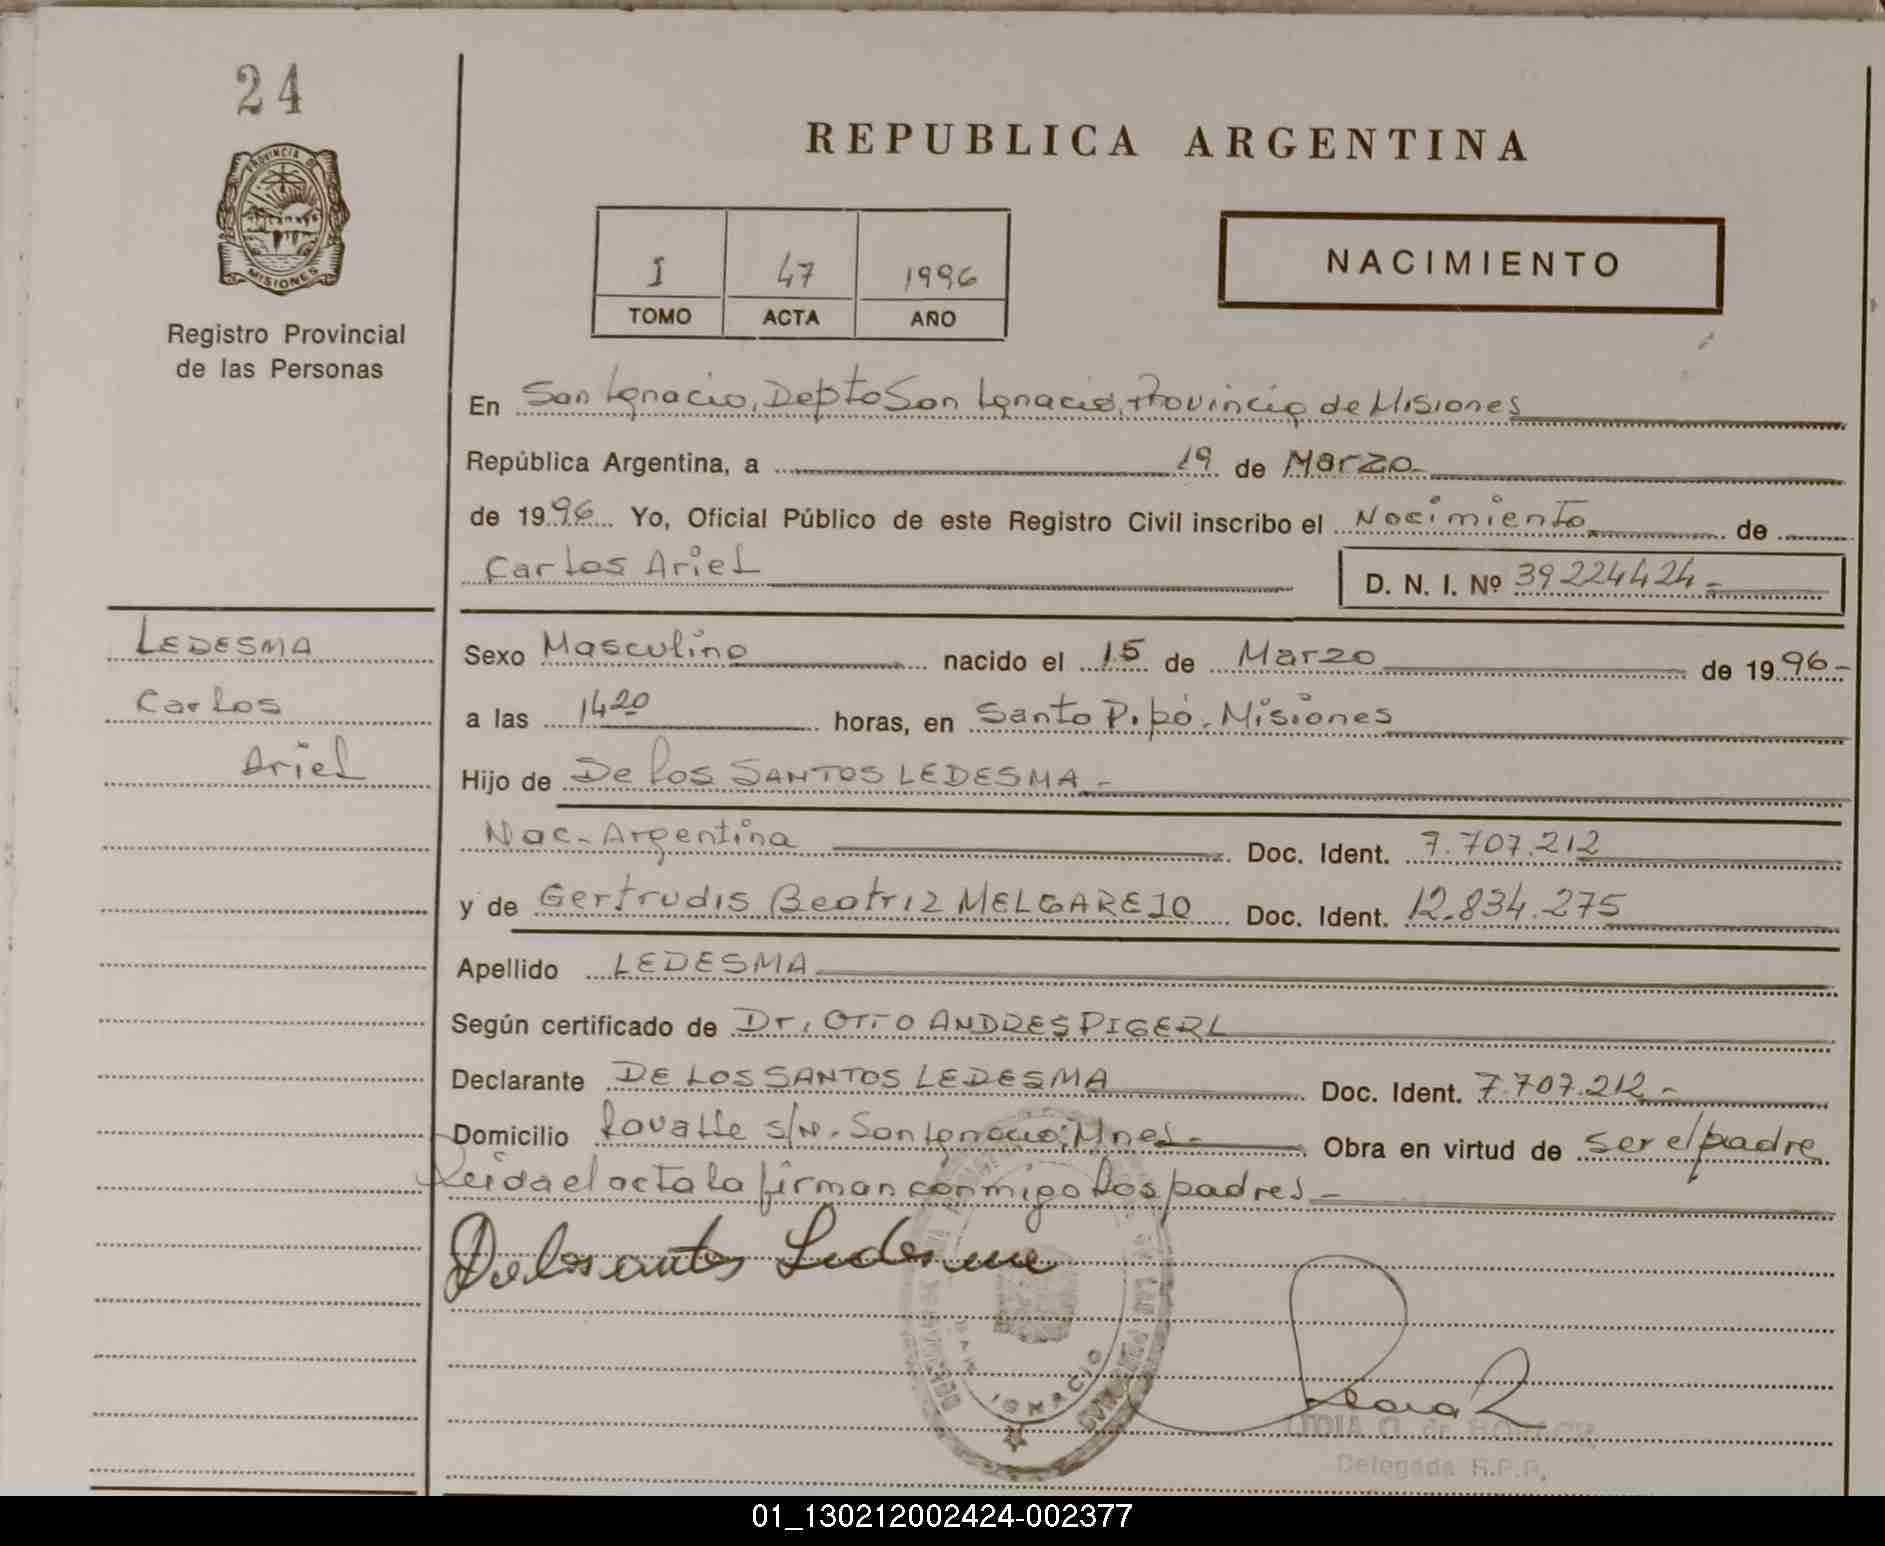 24
PROVINCIA DE
MISIONES
Registro Provincial
de las Personas
REPUBLICA ARGENTINA
I 47 1996
TOMO ACTA AÑO
NACIMIENTO
En San Ignacio, Depto San Ignacio, Provincia de Misiones
República Argentina, a 19 de Marzo
de 1996 Yo, Oficial Público de este Registro Civil inscribo el Nacimiento de
Carlos Ariel D. N. I. Nº 39224424-
LEDESMA
Carlos
Ariel
Sexo Masculino nacido el 15 de Marzo de 1996-
a las 14 20 horas, en Santo Pipó, Misiones
Hijo de De los SANTOS LEDESMA-
Nac. Argentina Doc. Ident. 7.707.212
y de Gertrudis Beatriz MELGAREJO Doc. Ident. 12.834.275
Apellido LEDESMA
Según certificado de Dr. OTTO ANDRES PIGERL
Declarante DE LOS SANTOS LEDESMA Doc. Ident. 7.707.212-
Domicilio Lavalle s/n. San Ignacio, Mnes- Obra en virtud de ser el padre
Leida el acta la firman conmigo los padres-
Delosantos Ledesma
IGNACIO
Delegada R.P.P.
01_130212002424-002377